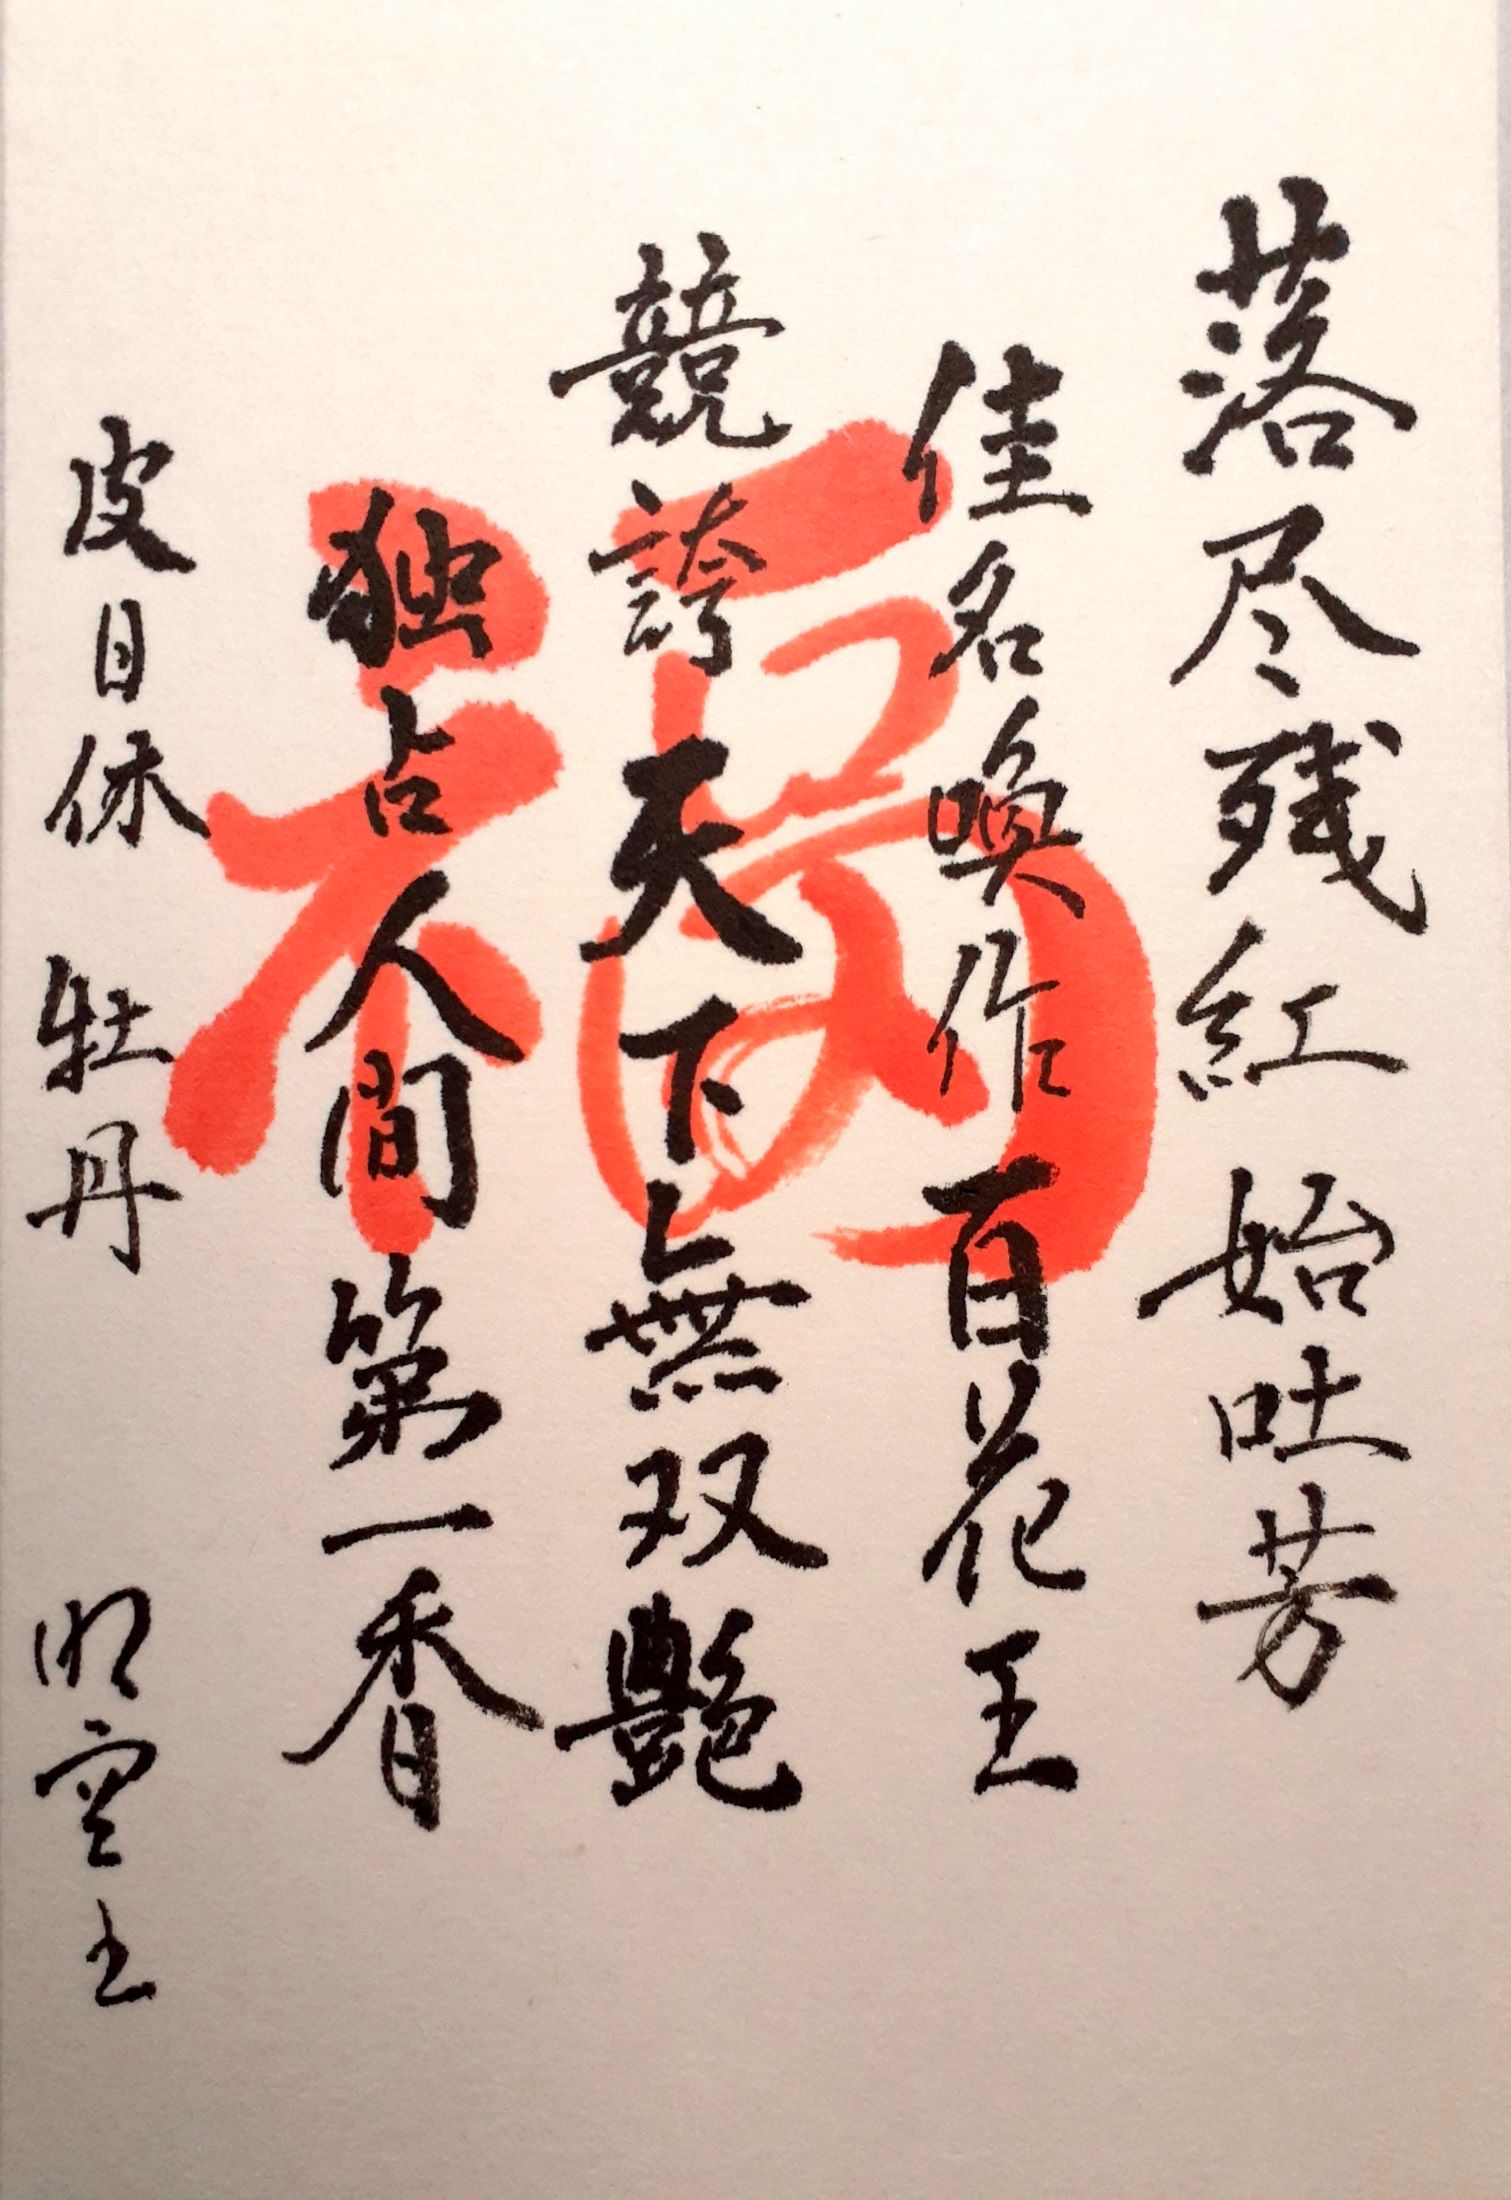 落尽残紅始吐芳
佳名喚作百花王
競誇天下無双艶
独占人間第一香
皮日休 牡丹 明空主
福